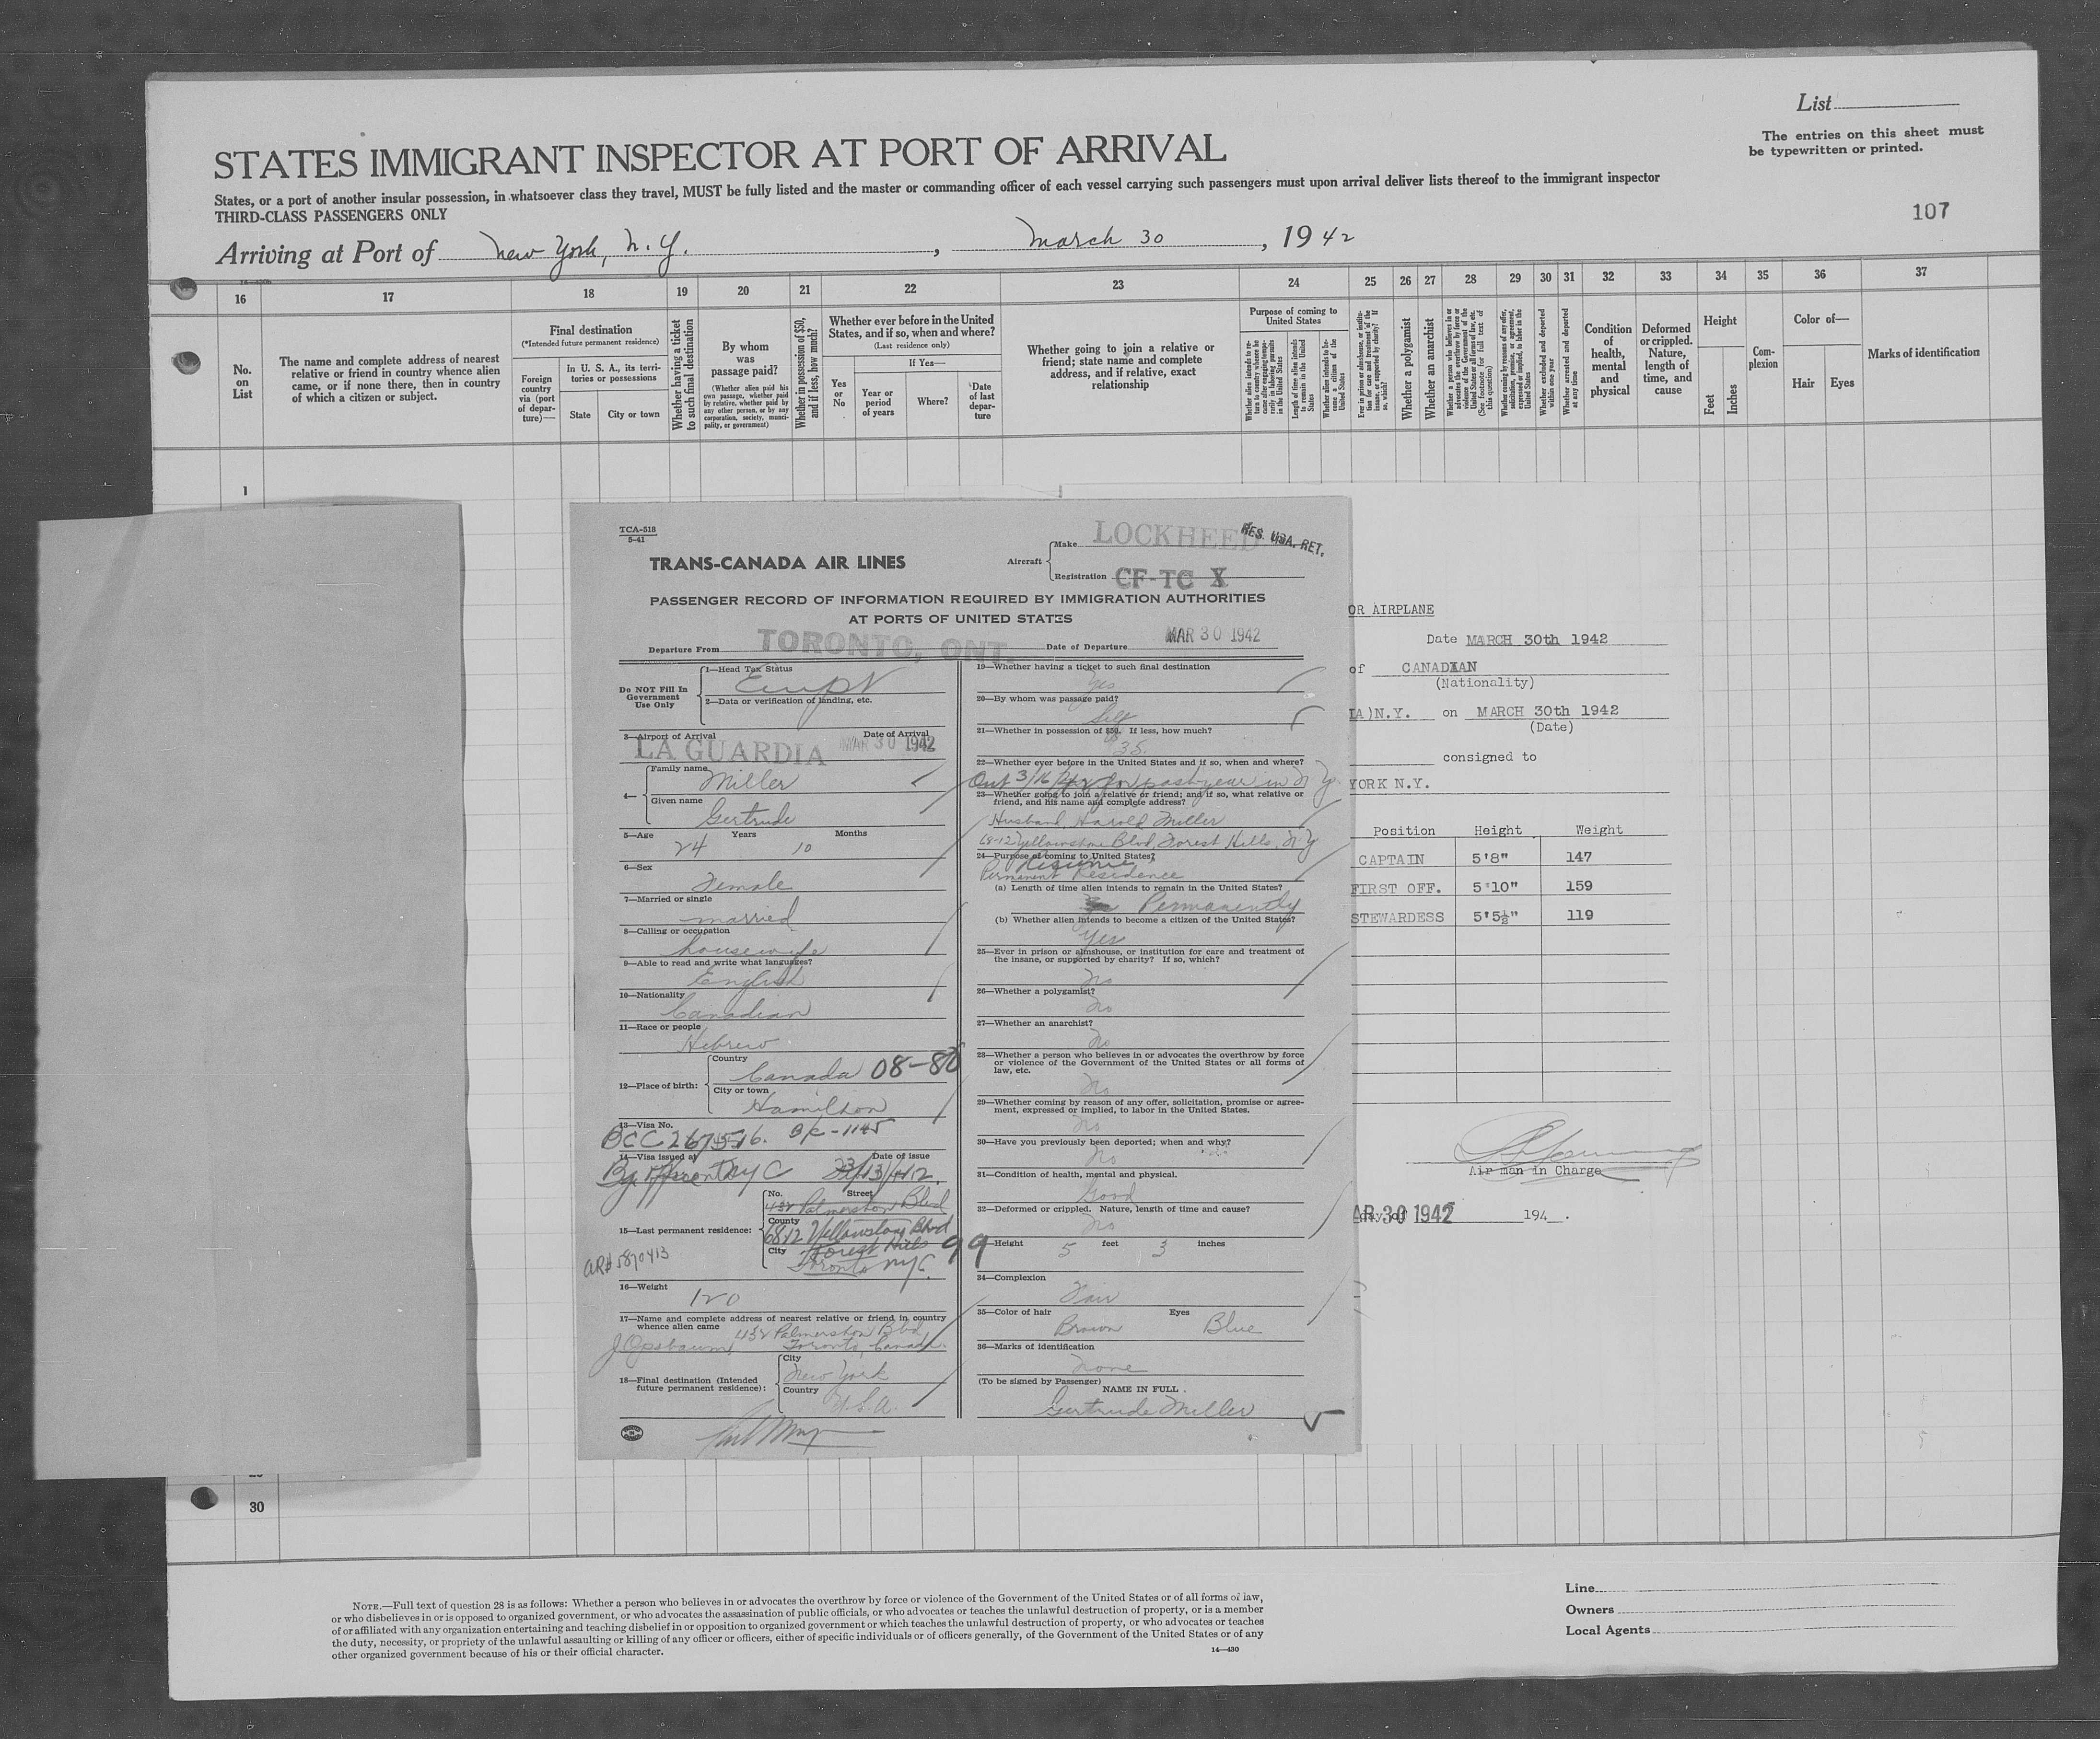 List
The entries on this sheet must
be typewritten or printed.
STATES IMMIGRANT INSPECTOR AT PORT OF ARRIVAL
States, or a port of another insular possession, in whatsoever class they travel, MUST be fully listed and the master or commanding officer of each vessel carrying such passengers must upon arrival deliver lists thereof to the immigrant inspector
THIRD-CLASS PASSENGERS ONLY
107
Arriving at Port of New York, N.Y. , March 30 , 1942
16 17 18 19 20 21 22 23 24 25 26 27 28 29 30 31 32 33 34 35 36 37
No.
on
List
The name and complete address of nearest
relative or friend in country whence alien
came, or if none there, then in country
of which a citizen or subject.
Final destination
(*Intended future permanent residence)
Foreign
country
via (port
of depar-
ture)—
In U. S. A., its terri-
tories or possessions
State
City or town
Whether having a ticket
to such final destination
By whom
was
passage paid?
(Whether alien paid his
own passage, whether paid
by relative, whether paid by
any other person, or by any
corporation, society, munici-
pality, or government)
Whether in possession of $50,
and if less, how much?
Whether ever before in the United
States, and if so, when and where?
(Last residence only)
Yes
or
No
If Yes—
Year or
period
of years
Where?
Date
of last
depar-
ture
Whether going to join a relative or
friend; state name and complete
address, and if relative, exact
relationship
Purpose of coming to
United States
Length of time alien intends
to remain in the United
States
Whether alien intends to be-
come a citizen of the
United States
Whether a polygamist
Whether an anarchist
Whether excluded and deported
within one year
Whether arrested and deported
at any time
Condition
of
health,
mental
and
physical
Deformed
or crippled.
Nature,
length of
time, and
cause
Height
Feet
Inches
Com-
plexion
Color of—
Hair
Eyes
Marks of identification
1
TCA-518
5-41
TRANS-CANADA AIR LINES
Aircraft
Make LOCKHEED
RES. USA. RET.
Registration CF-TC X
PASSENGER RECORD OF INFORMATION REQUIRED BY IMMIGRATION AUTHORITIES
AT PORTS OF UNITED STATES
Departure From TORONTO, ONT. Date of Departure MAR 30 1942
Do NOT Fill In
Government
Use Only
1—Head Tax Status
2—Data or verification of landing, etc.
3—Airport of Arrival Date of Arrival
LA GUARDIA MAR 30 1942
4—
Family name
Miller
Given name
Gertrude
5—Age Years Months
24 10
6—Sex
Female
7—Married or single
married
8—Calling or occupation
housewife
9—Able to read and write what languages?
English
10—Nationality
Canadian
11—Race or people
Hebrew
12—Place of birth:
Country
Canada 08-80
City or town
Hamilton
13—Visa No.
14—Visa issued at Date of issue
15—Last permanent residence:
No. Street
432 Palmerston Blvd
County
6812 Yellowstone Blvd
City Forest Hills
Toronto NYC.
99
AR# 5870413
16—Weight
120
17—Name and complete address of nearest relative or friend in country
whence alien came
432 Palmerston Blvd
Toronto, Canada.
18—Final destination (Intended
future permanent residence):
City
New York
Country
U.S.A.
19—Whether having a ticket to such final destination
Yes
20—By whom was passage paid?
Self
21—Whether in possession of $50. If less, how much?
35.
22—Whether ever before in the United States and if so, when and where?
past year in N.Y.
23—Whether going to join a relative or friend; and if so, what relative or
friend, and his name and complete address?
Husband, Harold Miller
68-12 Yellowstone Blvd, Forest Hills, N.Y
24—Purpose of coming to United States?
Resume
Permanent Residence
(a) Length of time alien intends to remain in the United States?
Permanently
(b) Whether alien intends to become a citizen of the United States?
Yes
25—Ever in prison or almshouse, or institution for care and treatment of
the insane, or supported by charity? If so, which?
No
26—Whether a polygamist?
No
27—Whether an anarchist?
No
28—Whether a person who believes in or advocates the overthrow by force
or violence of the Government of the United States or all forms of
law, etc.
No
29—Whether coming by reason of any offer, solicitation, promise or agree-
ment, expressed or implied, to labor in the United States.
No
30—Have you previously been deported; when and why?
No
31—Condition of health, mental and physical.
Good
32—Deformed or crippled. Nature, length of time and cause?
No
Height 5 feet 3 inches
34—Complexion
Fair
35—Color of hair Eyes
Brown Blue
36—Marks of identification
none
(To be signed by Passenger)
NAME IN FULL
Gertrude Miller
OR AIRPLANE
Date MARCH 30th 1942
of CANADIAN
(Nationality)
IA)N.Y. on MARCH 30th 1942
(Date)
consigned to
YORK N.Y.
Position Height Weight
CAPTAIN 5'8" 147
FIRST OFF. 5'10" 159
STEWARDESS 5'5½" 119
Air man in Charge
AR 30 1942 194 .
30
NOTE.—Full text of question 28 is as follows: Whether a person who believes in or advocates the overthrow by force or violence of the Government of the United States or of all forms of law,
or who disbelieves in or is opposed to organized government, or who advocates the assassination of public officials, or who advocates or teaches the unlawful destruction of property, or is a member
of or affiliated with any organization entertaining and teaching disbelief in or opposition to organized government or which teaches the unlawful destruction of property, or who advocates or teaches
the duty, necessity, or propriety of the unlawful assaulting or killing of any officer or officers, either of specific individuals or of officers generally, of the Government of the United States or of any
other organized government because of his or their official character.
14—430
Line
Owners
Local Agents